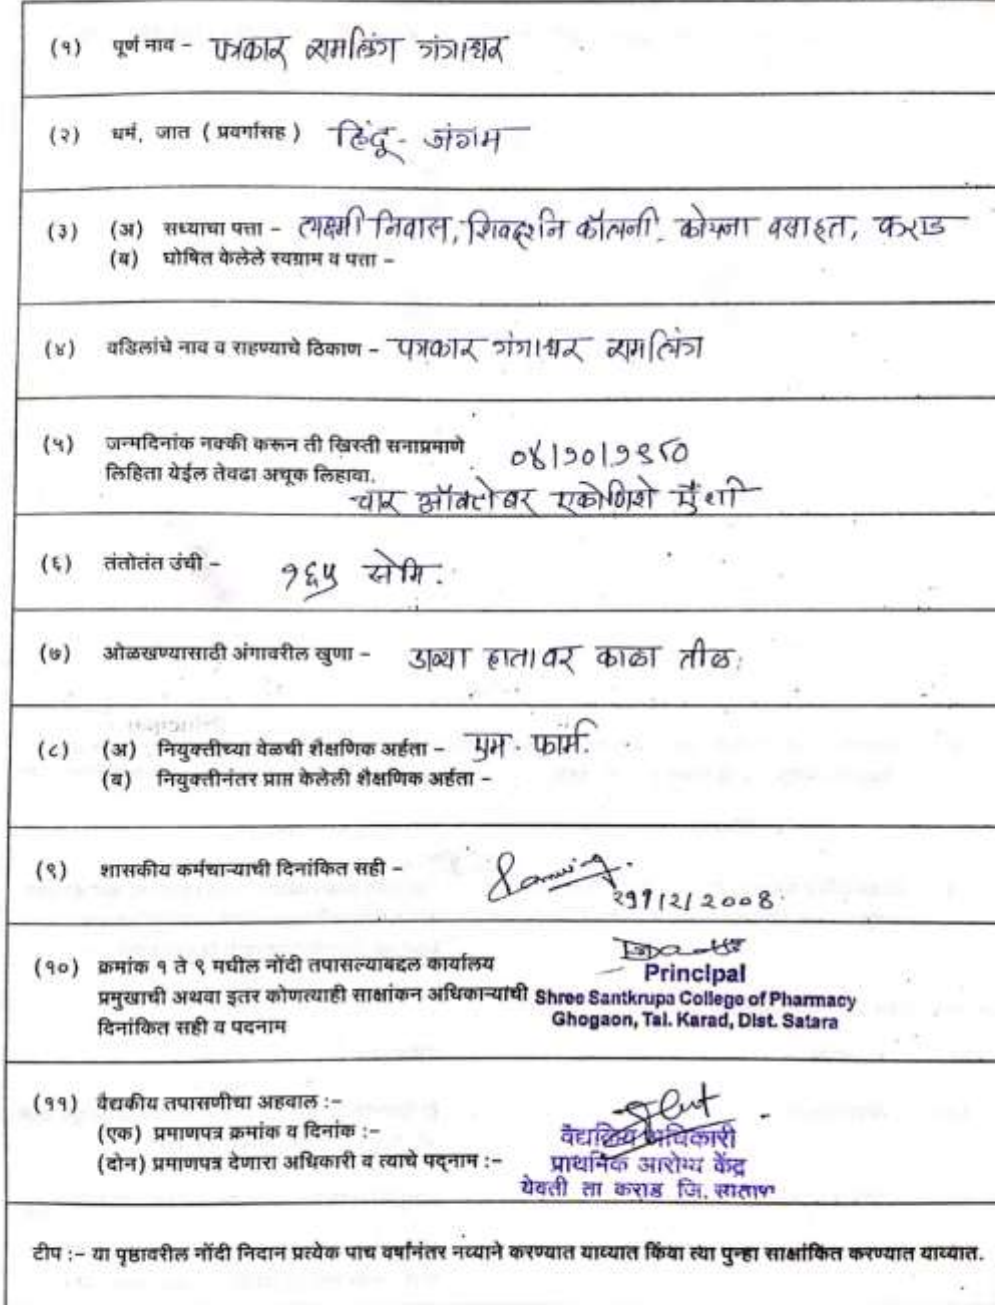 (१) पूर्ण नाव - पत्रकार रामलिंग गंगाधर
(२) धर्म, जात ( प्रवर्गासह ) हिंदू - जंगम
(३) (अ) सध्याचा पत्ता - लक्ष्मी निवास, शिवदर्शन कॉलनी. कोयना वसाहत, कराड
(ब) घोषित केलेले स्वग्राम व पत्ता -
(४) वडिलांचे नाव व राहण्याचे ठिकाण - पत्रकार गंगाधर रामलिंग
(५) जन्मदिनांक नक्की करून ती ख्रिस्ती सनाप्रमाणे
लिहिता येईल तेवढा अचूक लिहावा. ०४/१०/१९८०
चार ऑक्टोबर एकोणिशे ऐंशी
(६) तंतोतंत उंची - १६५ सेमि.
(७) ओळखण्यासाठी अंगावरील खुणा - डाव्या हातावर काळा तीळ.
(८) (अ) नियुक्तीच्या वेळची शैक्षणिक अर्हता - एम. फार्म.
(ब) नियुक्तीनंतर प्राप्त केलेली शैक्षणिक अर्हता -
(९) शासकीय कर्मचाऱ्याची दिनांकित सही -
(१०) क्रमांक १ ते ९ मधील नोंदी तपासल्याबद्दल कार्यालय
प्रमुखाची अथवा इतर कोणत्याही साक्षांकन अधिकाऱ्यांची
दिनांकित सही व पदनाम
Principal
Shree Santkrupa College of Pharmacy
Ghogaon, Tal. Karad, Dist. Satara
(११) वैद्यकीय तपासणीचा अहवाल :-
(एक) प्रमाणपत्र क्रमांक व दिनांक :-
(दोन) प्रमाणपत्र देणारा अधिकारी व त्याचे पद्नाम :-
वैद्यकिय अधिकारी
प्राथमिक आरोग्य केंद्र
येवती ता कराड जि. सातारा
टीप :- या पृष्ठावरील नोंदी निदान प्रत्येक पाच वर्षांनंतर नव्याने करण्यात याव्यात किंवा त्या पुन्हा साक्षांकित करण्यात याव्यात.